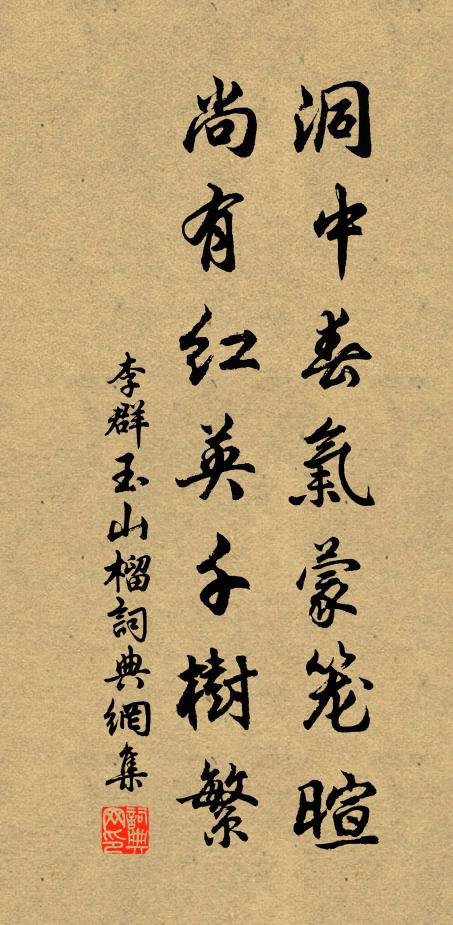 洞中春氣蒙笼暄
尚有红英千樹繁
李群玉山榴詞典網集
詞典網印